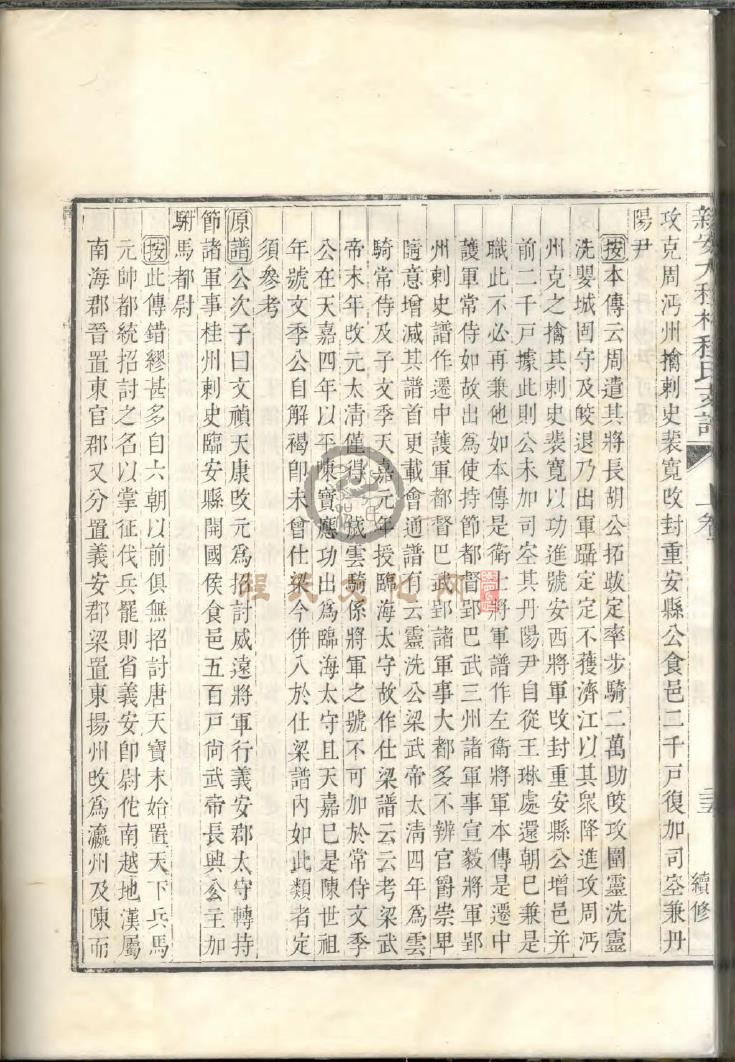 新安大程村程氏支譜
上卷
續修
攻克周沔州擒刺史裴寬改封重安縣公食邑二千戸復加司空兼丹
陽尹
按本傳云周遣其將長胡公拓跋定率步騎二萬助皎攻圍靈洗靈
洗嬰城固守及皎退乃出軍躡定定不獲濟江以其衆降進攻周沔
州克之擒其刺史裴寬以功進號安西將軍改封重安縣公增邑并
前二千戸據此則公未加司空其丹陽尹自從王琳處還朝已兼是
職此不必再兼他如本傳是衛士將軍譜作左衛將軍本傳是遷中
護軍常侍如故出為使持節都督郢巴武三州諸軍事宣毅將軍郢
州刺史譜作遷中護軍都督巴武郢諸軍事大都多不辨官爵崇卑
隨意增減其譜首更載會通譜有云靈洗公梁武帝太清四年為雲
騎常侍及子文季天嘉元年授臨海太守故作仕梁譜云云考梁武
帝末年改元太清僅得 載雲騎係將軍之號不可加於常侍文季
公在天嘉四年以平陳寶應功出為臨海太守且天嘉巳是陳世祖
年號文季公自解褐卽未曾仕梁今併入於仕梁譜內如此類者定
須參考
原譜公次子曰文禎天康改元為招討威遠將軍行義安郡太守轉持
節諸軍事桂州刺史臨安縣開國侯食邑五百戸尙武帝長興公主加
駙馬都尉
按此傳錯繆甚多自六朝以前俱無招討唐天寶末始置天下兵馬
元帥都統招討之名以掌征伐兵罷則省義安卽尉佗南越地漢屬
南海郡晉置東官郡又分置義安郡梁置東揚州改為瀛州及陳而
程氏文化网